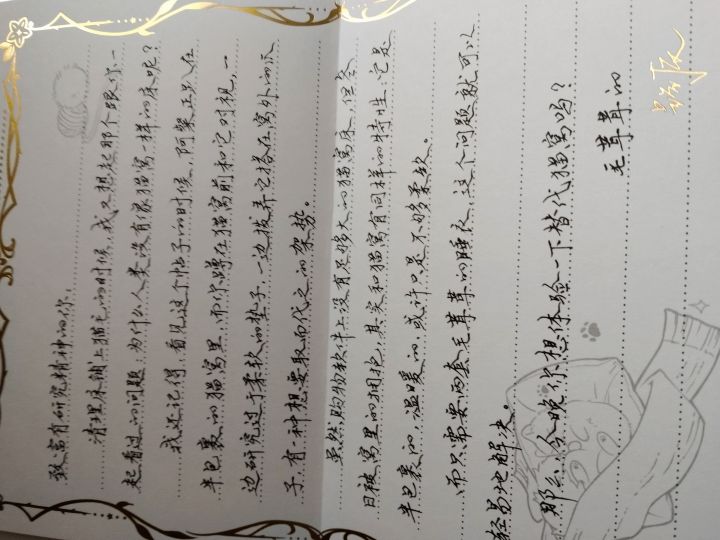 致富有研究精神的你：
清理床铺上猫毛的时候，我又想起那个跟你一
起看过的问题：为什么人类没有像猫窝一样的床呢？
我还记得，看见这个帖子的时候，阿黎正趴在
半包裹的猫窝里，而你蹲在猫窝前和它对视，一
边研究过于柔软的垫子，一边拔弄它搭在窝外的爪
子，有一种想要取而代之的架势。
虽然，购物软件上没有足够大的猫窝床，但冬
日被窝里的拥抱，其实和猫窝有同样的特性：它是
半包裹的，温暖的，或许只是不够柔软。
而只需要两套毛茸茸的睡衣，这个问题就可以
轻易地解决。
那么，今晚你想体验一下替代猫窝吗？
毛茸茸的